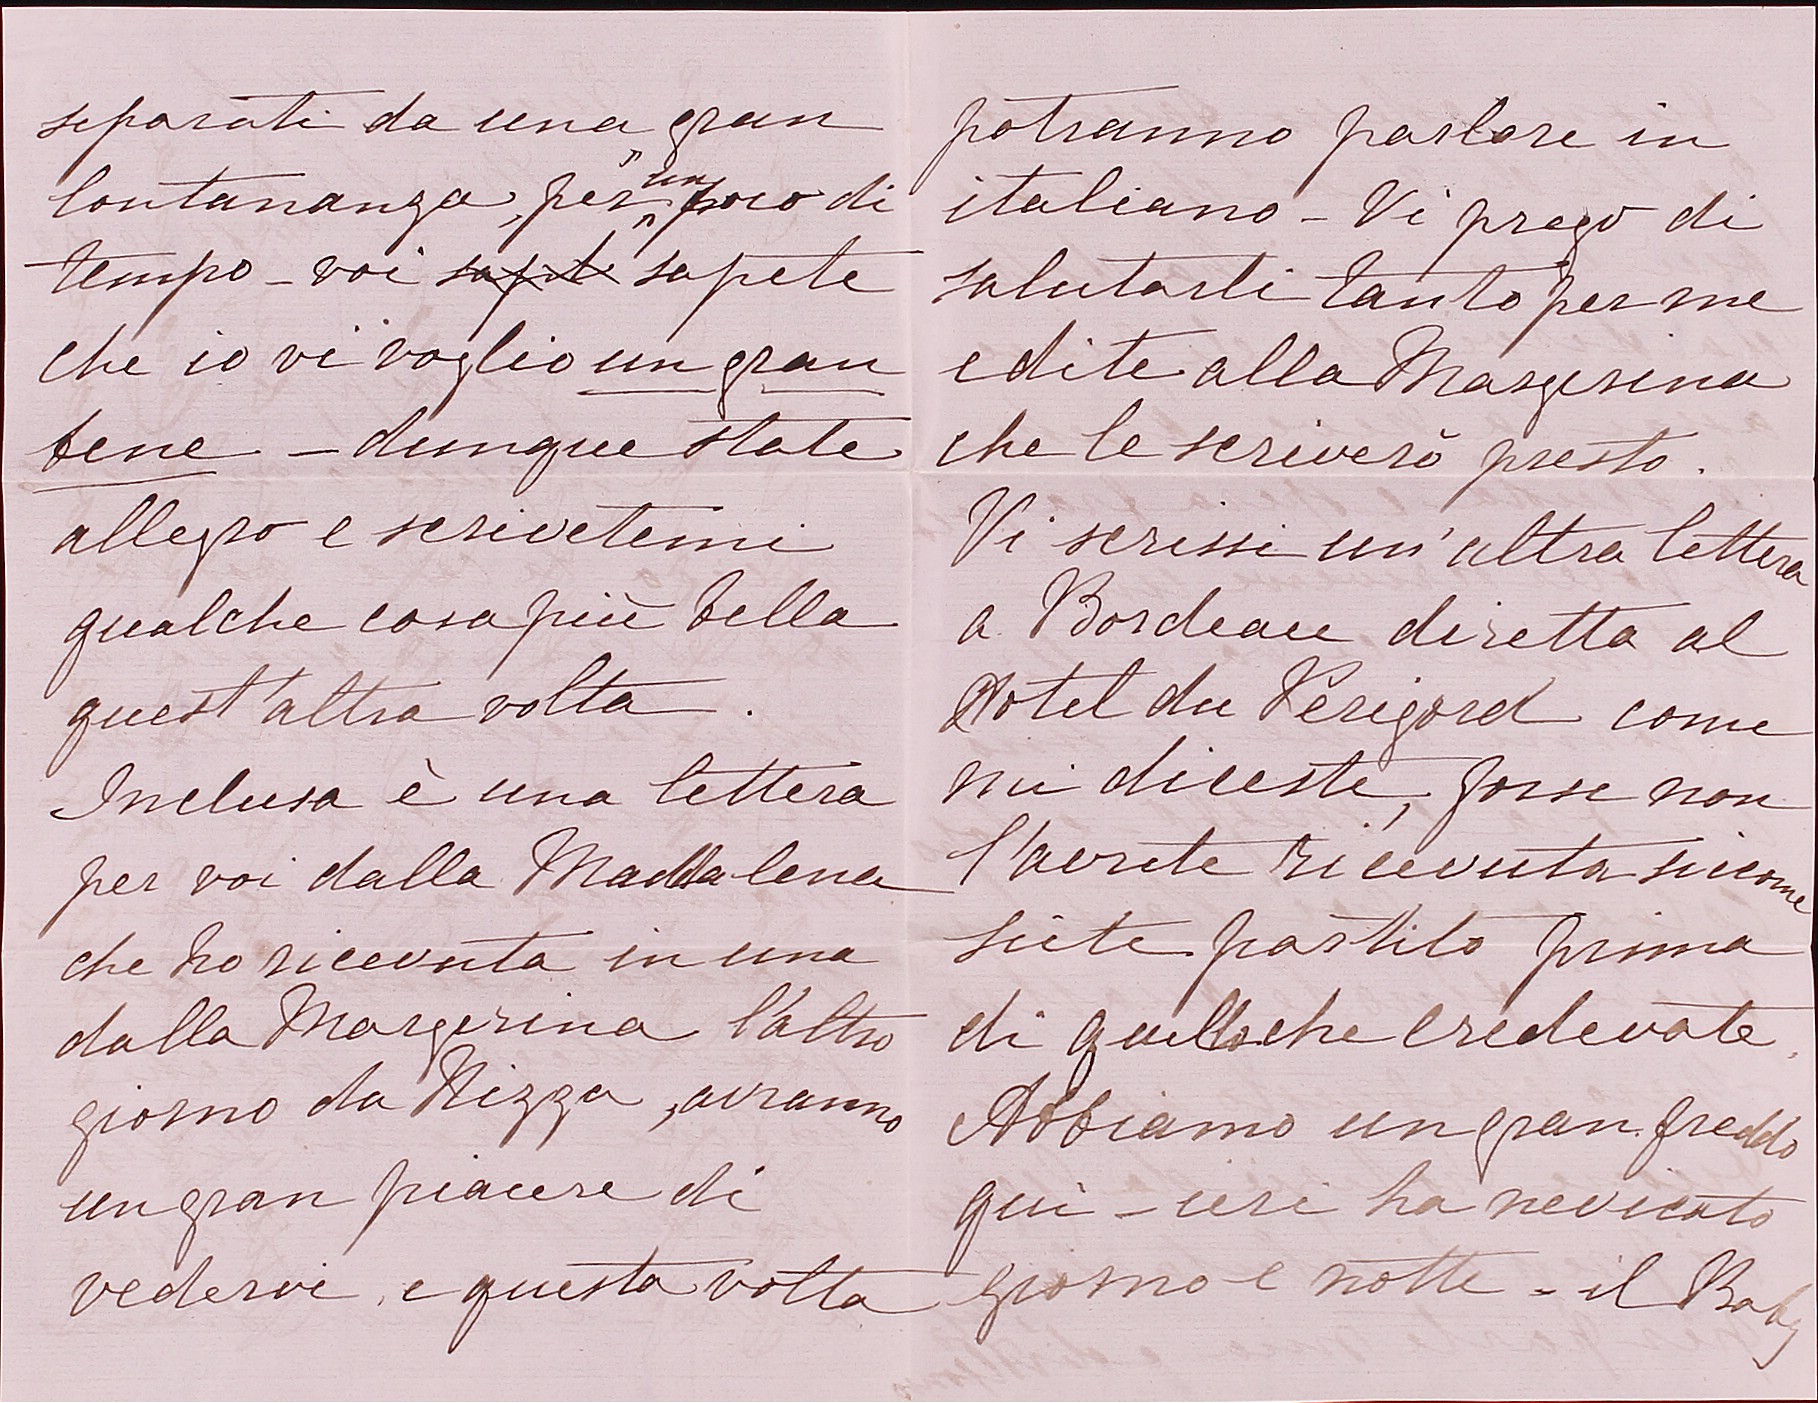 separati da una gran
lontananza, per un poco di
tempo - voi sapete sapete
che io vi voglio un gran
bene - dunque state
allegro e scrivetemi
qualche cosa più bella
quest'altra volta.
Inclusa è una lettera
per voi dalla Maddalena
che ho ricevuta in una
dalla Margerina l'altro
giorno da Nizza, avranno
un gran piacere di
vedervi, e questa volta
potranno parlare in
italiano - Vi prego di
salutarli tanto per me
e dite alla Margerina
che le scriverò presto.
Vi scrissi un'altra lettera
a Bordeau diretta al
Hotel du Perigord come
mi diceste, forse non
l'avrete ricevuta siccome
siete partito prima
di quello che credevate.
Abbiamo un gran freddo
qui - ieri ha nevicato
giorno e notte - il Baby